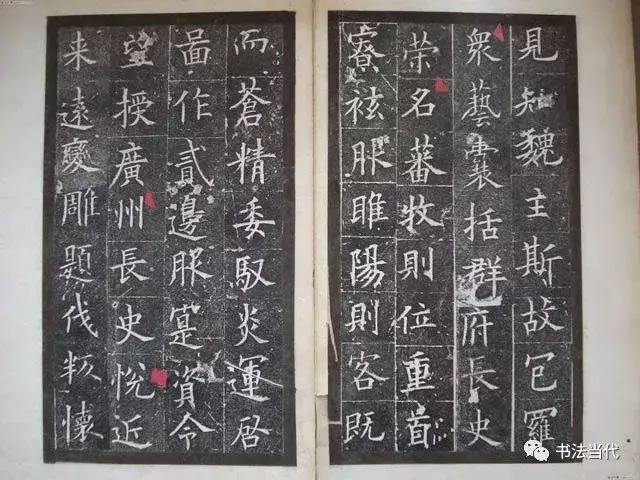 見知魏主斯故包羅
衆藝囊括群府長史
荣名蕃牧則位重首
寮袨服睢陽則客既
而蒼精委馭炎運启
啚作貳邊服寔資令
望授廣州長史悅近
来遠變雕題伐叛懷
书法当代